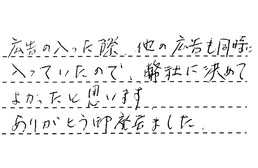 広告の入った際、他の広告も同時に
入っていたので、弊社に決めて
よかったと思います
ありがとう御座居ました。